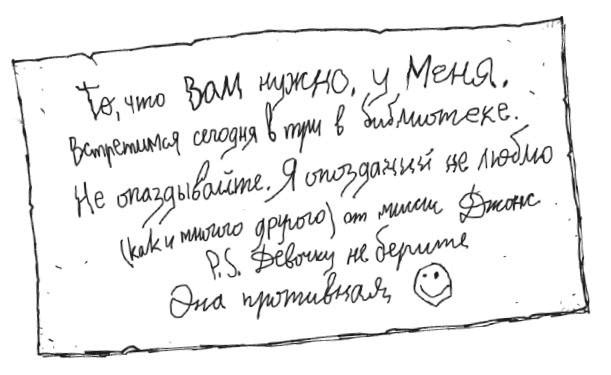 То, что вам нужно, у меня.
Встретимся сегодня в три в библиотеке.
Не опаздывайте. Я опозданий не люблю
(как и многого другого) от мисси Джонс
P.S. Девочку не берите
Она противная